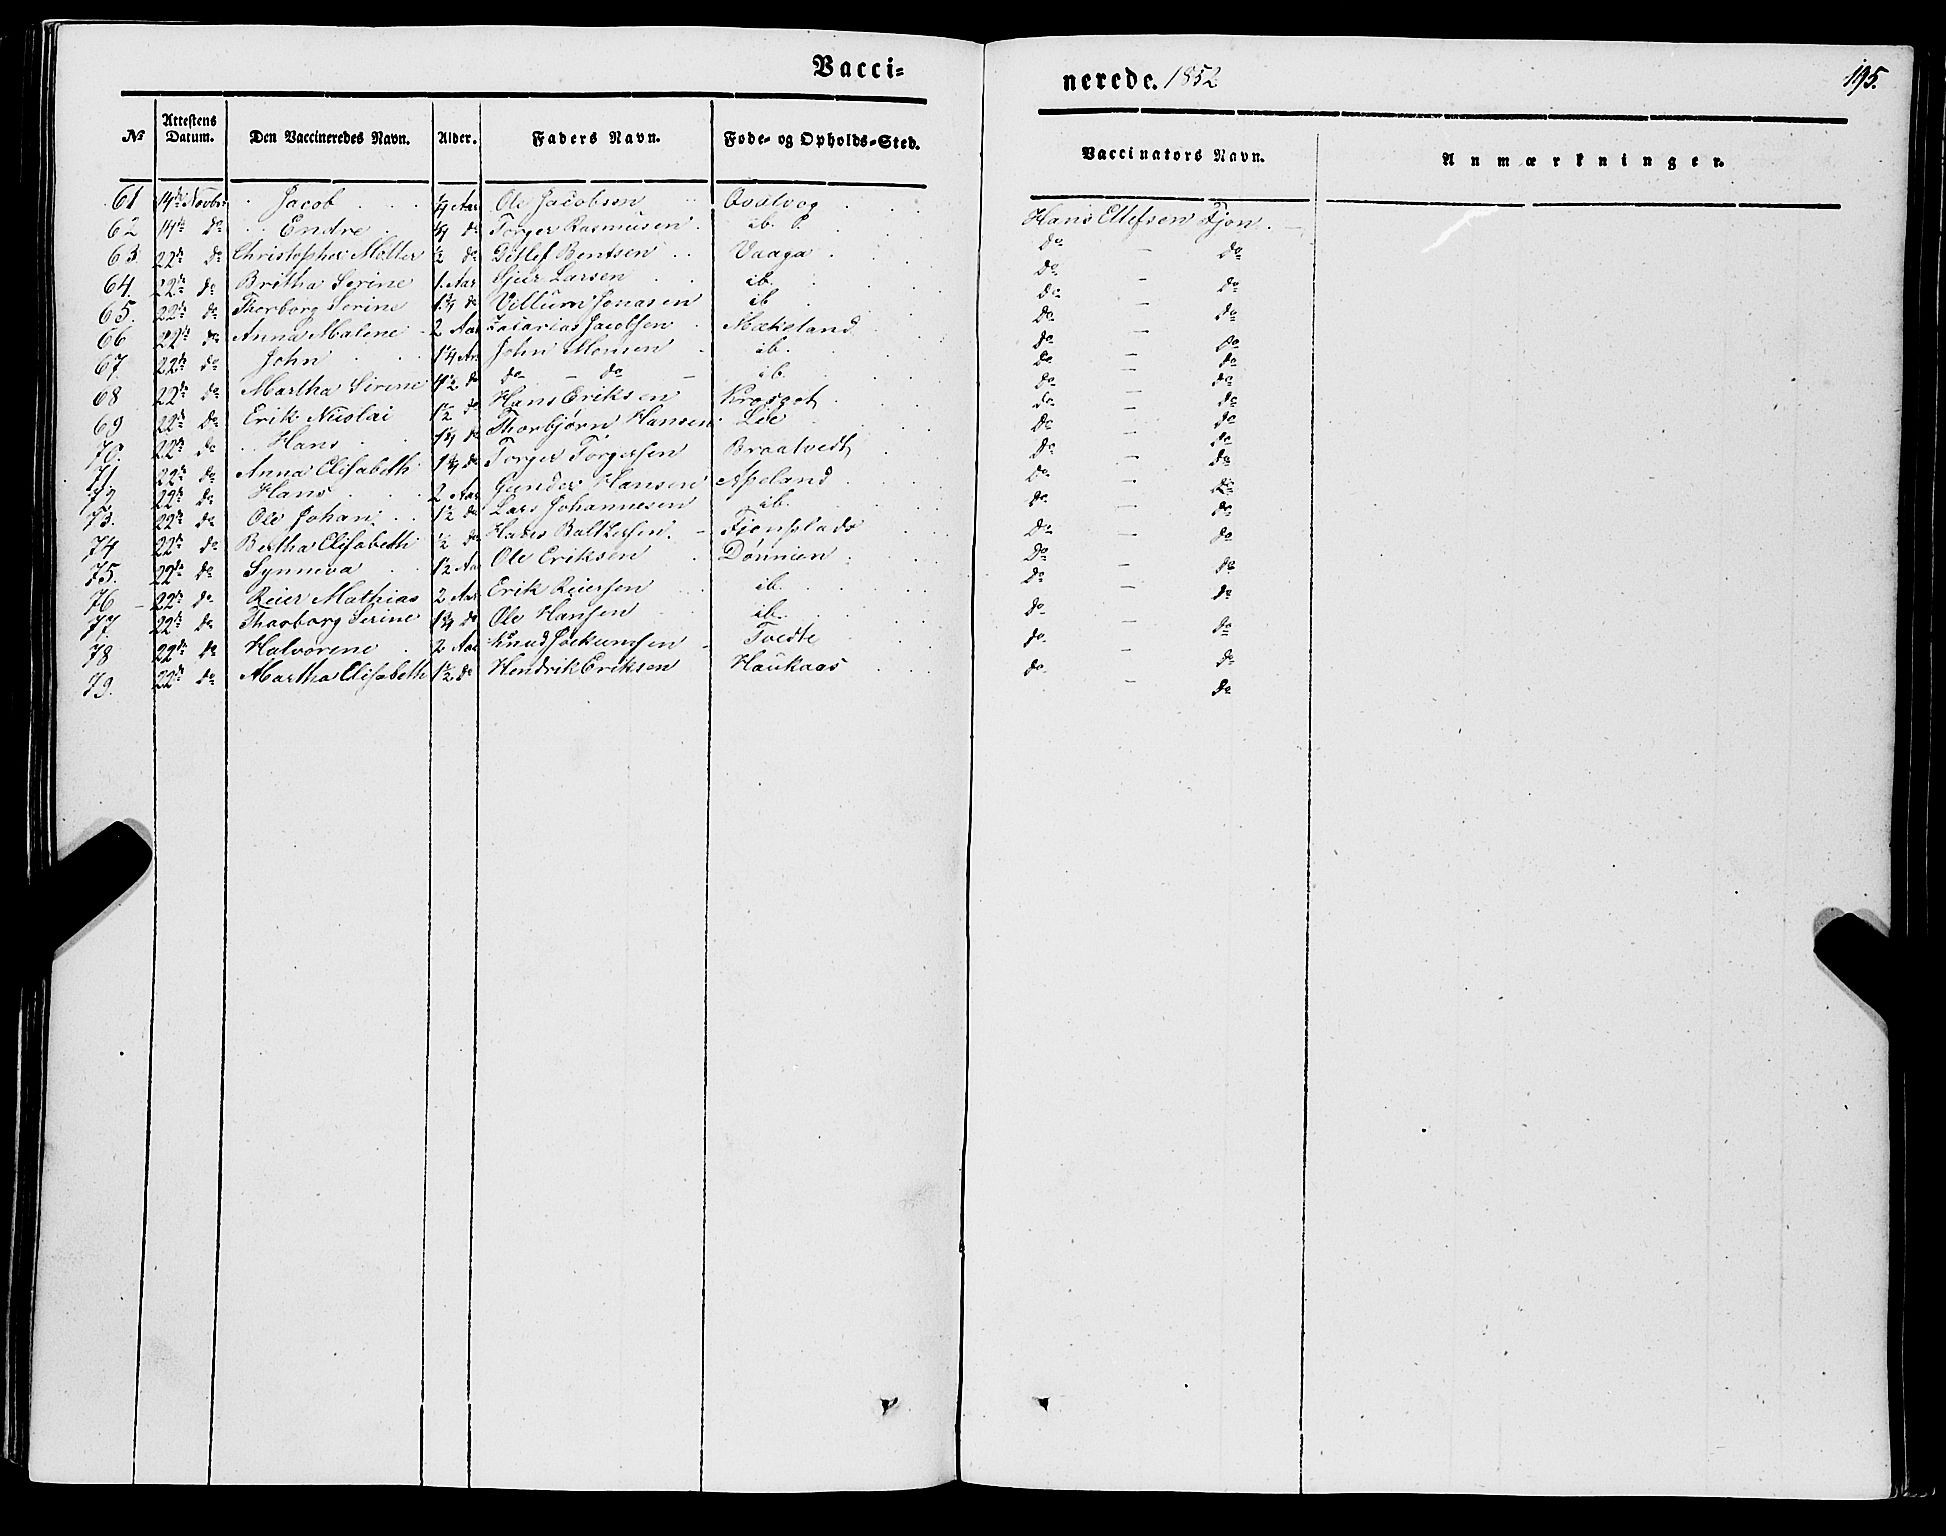 Vacci=
nerede. 1852
195.
No Attestens Datum. Den Vaccineredes Navn. Alder. Faders Navn. Føde- og Opholds-Sted. Vaccinators Navn. Anmærkninger.
61 14de Novbr Jacob ¼ Aar Ole Jacobsen Hans Ellefsen Fjon.
62 14de do Endre ¼ do Torger Rasmusen ib. do - do
63 22de do Christopher Møller ½ do Ditlef Bentsen Vaaga do - do
64. 22de do Britha Serine 1 Aar Sjur Larsen ib. do - do
65. 22de do Thorborg Serine 1¾ do Villum Jonasen ib do - do
66 22de do Anna Malene 2 Aar Zacarias Jacobsen Mækeland do - do
67. 22de do John 1¼ Ar John Monsen ib. do - do
68 22de do Martha Serine 4½ do do - do - ib. do - do
69 22de do Erik Nicolai 1½ do Hans Eriksen do - do
70. 22de do Hans 1¼ do Thorbjørn Hansen Lie do - do
71 22de do Anna Elisabeth 1¾ do Torger Torgersen Braatvedt do - do
72 22de do Hans 2 Aar Gunder Hansen Apeland do - do
73. 22de do Ole Johan 1½ do Lars Johannesen ib. do - do
74 22de do Bertha Elisabeth ½ do Hans Baltsersen Fjonsplads do - do
75. 22de do Synneva 1½ Aar Ole Eriksen Dønnien do - do
76 22de do Reier Mathias 2 Aar Erik Reiersen ib. do - do
77. 22de do Thorborg Serine 1¾ do Ole Hansen ib. do - do
78 22de do Halvorene 2 Aar Knud Tvedte do - do
79. 22de do Martha Elisabeth 1½ do Hendrik Eriksen Haukaas do - do